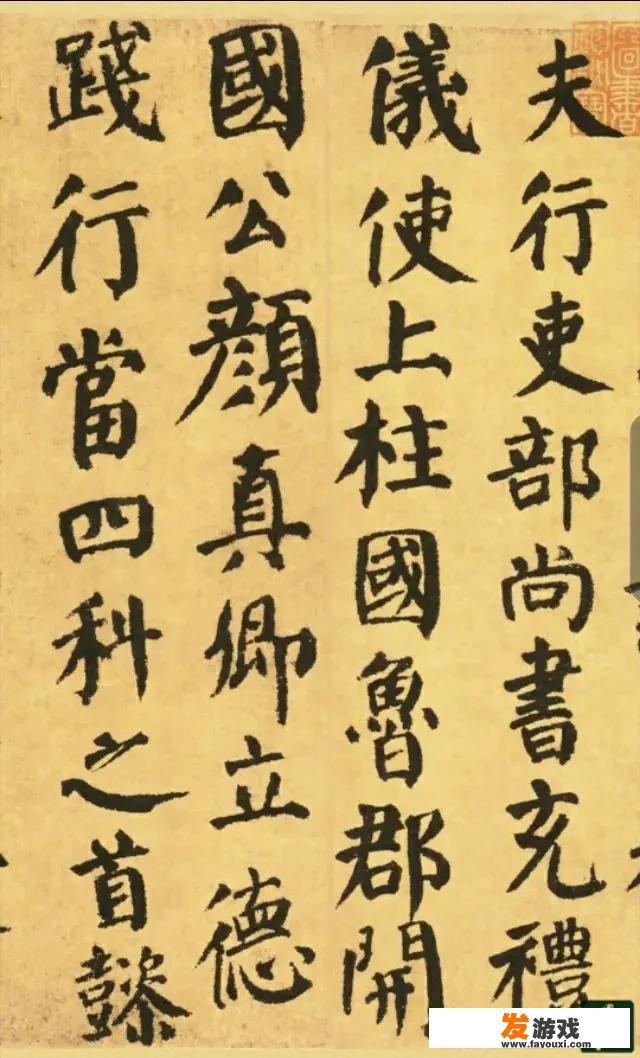 夫行吏部尚書充禮
儀使上柱國魯郡開
國公顏真卿立德
踐行當四科之首懿
发游戏
www.fayouxi.com